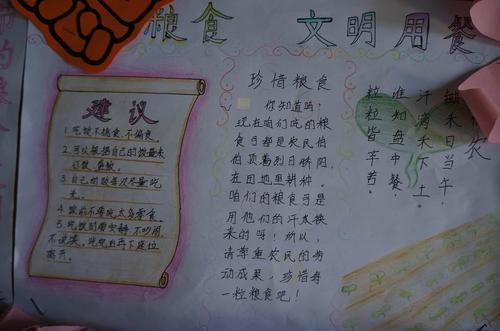 粮食 文明用餐
建议
1.吃饭不挑食、不偏食。
2.可以根据自己的饭量来
打饭、盛饭。
3.自己的饭要尽量吃
完。
4.饭前不要吃太多零食。
5.吃饭时要安静,不吵闹
不说笑。吃完后再下座位
离开。
珍惜粮食
你知道吗?
现在咱们吃的粮
食可都是农民伯
伯顶着烈日骄阳,
在田地里耕种。
咱们的粮食可是
用他们的汗水换
来的呀!所以,
请尊重农民的劳
动成果,珍惜每
一粒粮食吧!
悯农
锄禾日当午
汗滴禾下土
谁知盘中餐
粒粒皆辛苦。